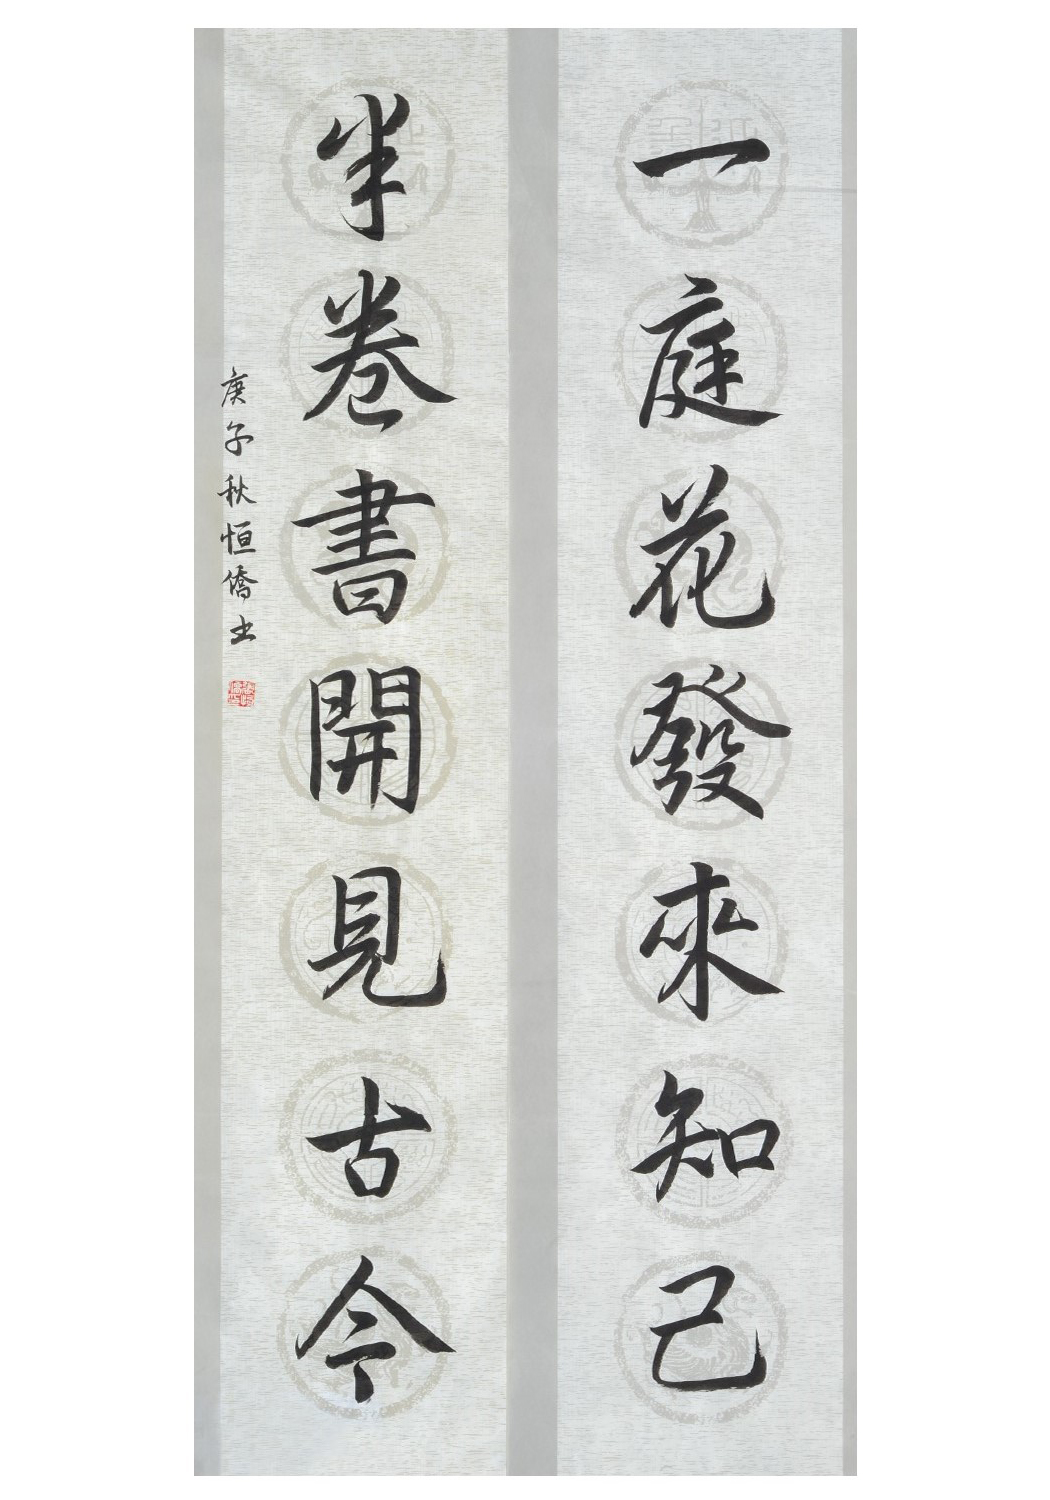 一庭花發來知己
半卷書開見古今
庚子秋恒僑书